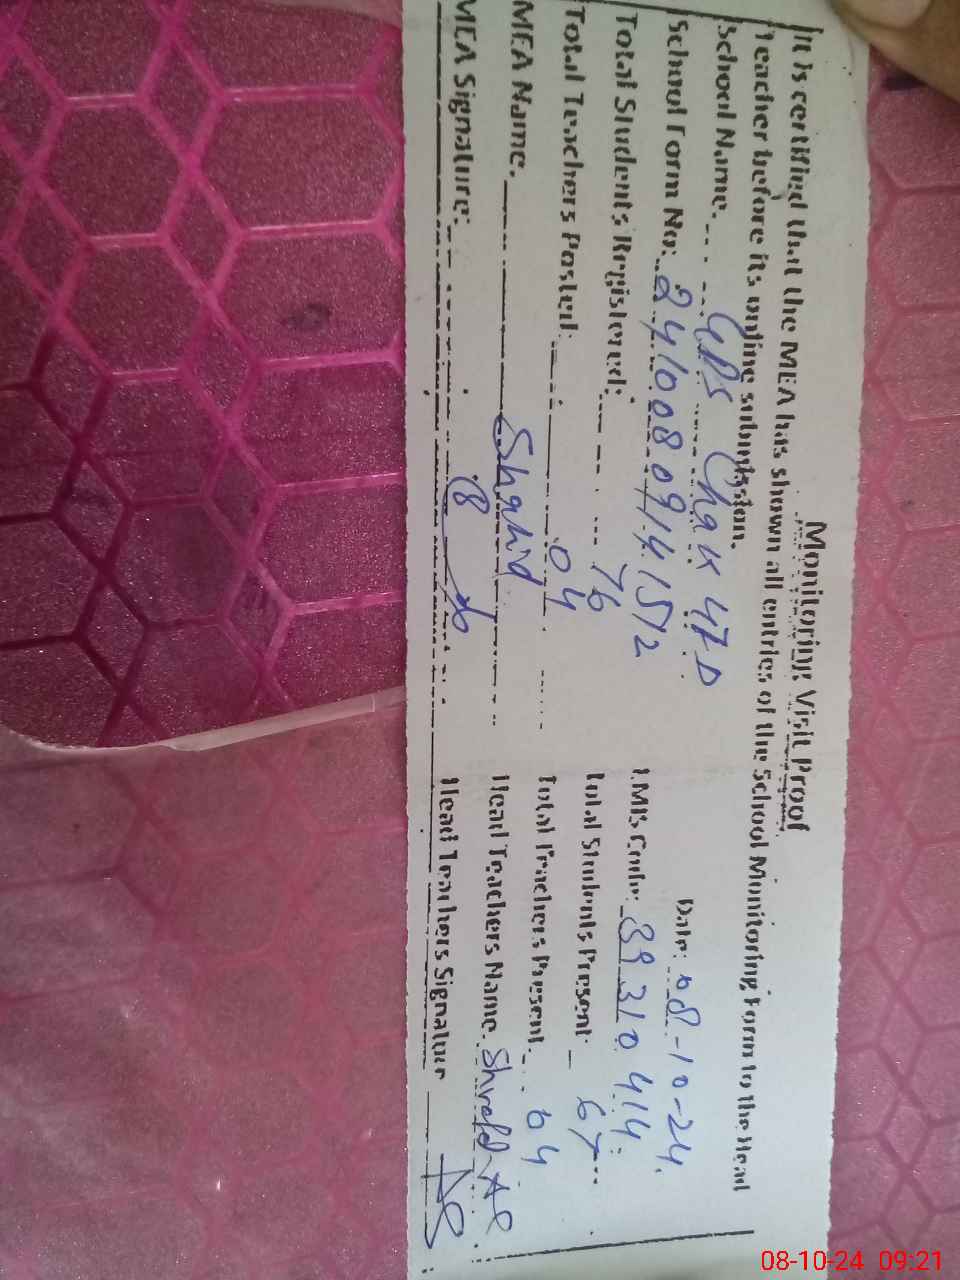 Monitoring Visit Proof
It is certified that the MEA has shown all entries of the School Monitoring Form to the Head
Teacher before its online submission.
School Name. GPS Chak 47 D
Date: 08-10-24
School Form No: 24100809141512
EMIS Code: 39310414
Total Students Registered: 76
Total Students Present 67
Total Teachers Posted: 04
Total Teachers Present. 04
MEA Name. Shahid
Head Teachers Name.
MEA Signature:
Head Teachers Signature
08-10-24 09:21